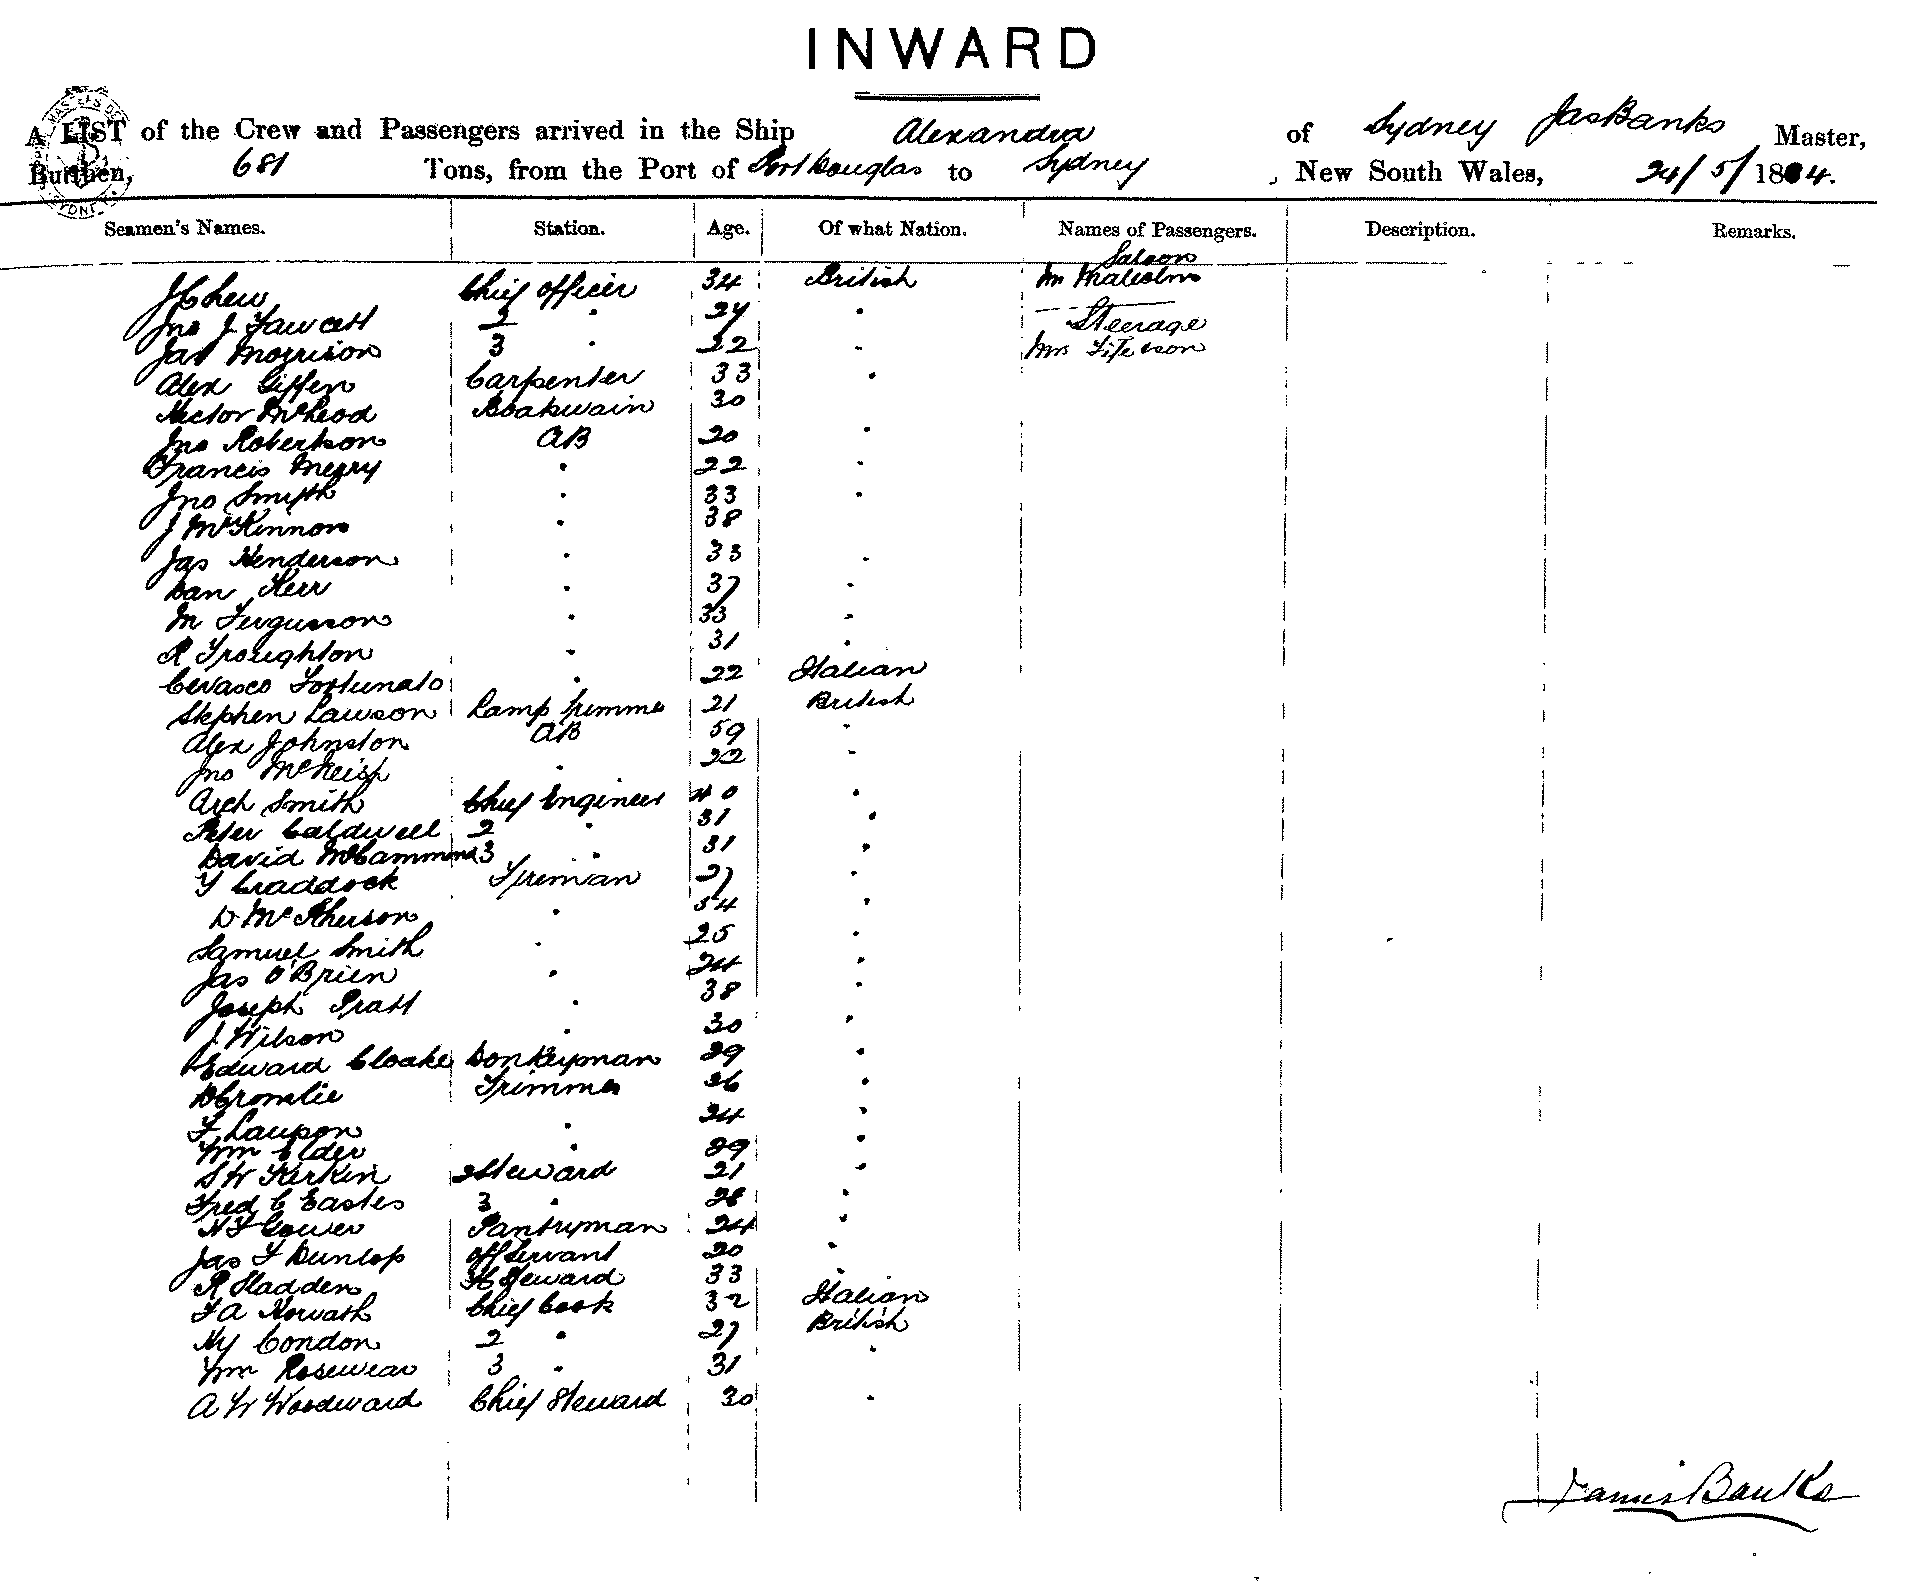 INWARD
A LIST of the Crew and Passengers arrived in the Ship Alexandra of Sydney Jas Banks Master,
Burthen, 681 Tons, from the Port of Port Douglas to Sydney, New South Wales, 24/5/1884.
Seamen's Names. Station. Age. Of what Nation. Names of Passengers. Description. Remarks.
Saloon
J Chew Chief Officer 34 British Mr Malcolm
Jno J Fawcett 2 " 27 " Steerage
Jas Morrison 3 " 22 " Mrs
Alex Giffen Carpenter 33 "
Hector McLeod Boatswain 30
Jno Robertson AB 20 "
Francis Merry " 22 "
Jno Smyth " 33 "
J McKinnon " 38
Jas Henderson " 33 "
Dan Kerr " 37 "
M Fergusson " 33 "
R Troughton " 31 "
Cevasco Fortunato " 22 Italian
Stephen Lawson Lamp Trimmer 21 British
Alex Johnston AB 59 "
Jno McKeish " 22 "
Arch Smith Chief Engineer 40 "
Peter Caldwell 2 " 31 "
David McCammond 3 " 31 "
T Craddock Fireman 27 "
D McPherson " 34 "
Samuel Smith " 25 "
Jas O'Brien " 24 "
Joseph Pratt " 38 "
J. Wilson " 30 "
Edward Cloake Donkeyman 29 "
D Cromlie Trimmer 26 "
F Laupon " 24 "
Wm Elder " 29 "
S W Kerkin 2 Steward 21 "
Fred C Eastes 3 " 28 "
H F Gower Pantryman 24 "
Jas F Dunlop Off Servant 20 "
R Hadden Steward 33 "
F A Horvath Chief Cook 32 Italian
Hy Condon 2 " 27 British
Wm Rosewear 3 " 31 "
A W Woodward Chief Steward 30 "
James Banks